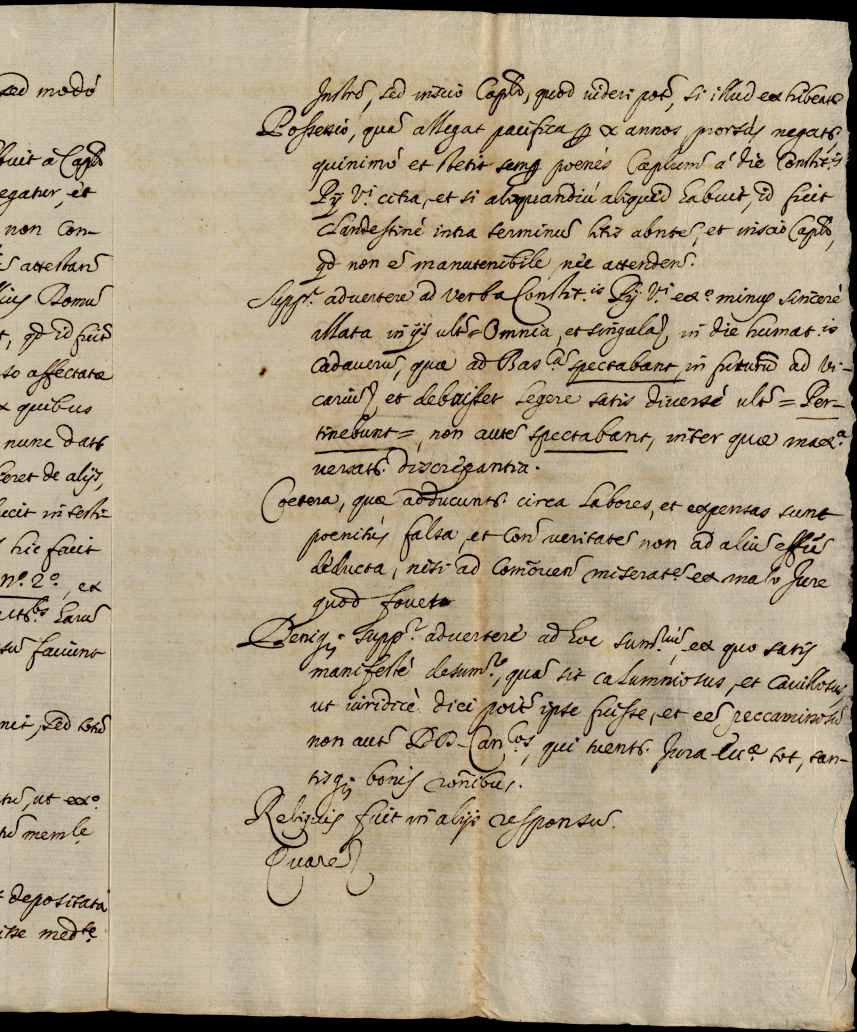 sed modó
buit á Capło
egatur, et
non Con-
attestar̃
Romũ
t, qđ id fuit
so affectatæ
quibus
nunc dats
ceret de alijs,
ecit in testi=
hic facit
n.º 2.º, ex
earũ
faciunt
sed totũ
ut exº
memłe
depositata
itse medte
Instrõ, sed inscio Capło, quod uideri potẽ, si illud exhibeats
Possessio, quã allegat pacifica ꝑ X annos, prorsus negats
quinimó et stetit semp poenés Capłum á die Constit.is
Pij V.i citra, et si aliquandiú aliquid habuit, id fecit
Clandestiné intra terminũ litis abntẽ, et inscio Capło,
qđ non ẽ manutenibile nec attendeñ.
Suppr. aduertere ad verba Constit.is Pij V.i ex.º minus sinceré
allata in ijs ultẽ = Omnia, et singula, in die humat.is
Cadaverũ, quæ ad Bas.cã spectabant, in futurũ ad Vi-
cariũ, et debuisset legere satis diversé ultẽ = Per-
tinebunt =, non autẽ spectabant, inter quæ max.a
versats. discrepantia.
Coetera, quæ adducunts. circa labores, et expensas sunt
poenitús falsa, et Coñ veritatẽ non ad aliũ effũ
deducta, nisi ad Com̃oueñ miseratẽ ex malo Jure
quod fouet
Benigq. Suppr. aduertere ad hoc sum.riũ, ex quo satis
manifesté desumr., quã sit calumniosus, et Cauillosus,
ut iuridicé dici potẽ ipse fuisse, et eẽ peccaminosũ
non autẽ DD. Can.cos, qui tuents. Jura Eccæ tot, tan-
tisq. bonis rõnibus.
Reliquis fuit in alijs responsũ.
Quare